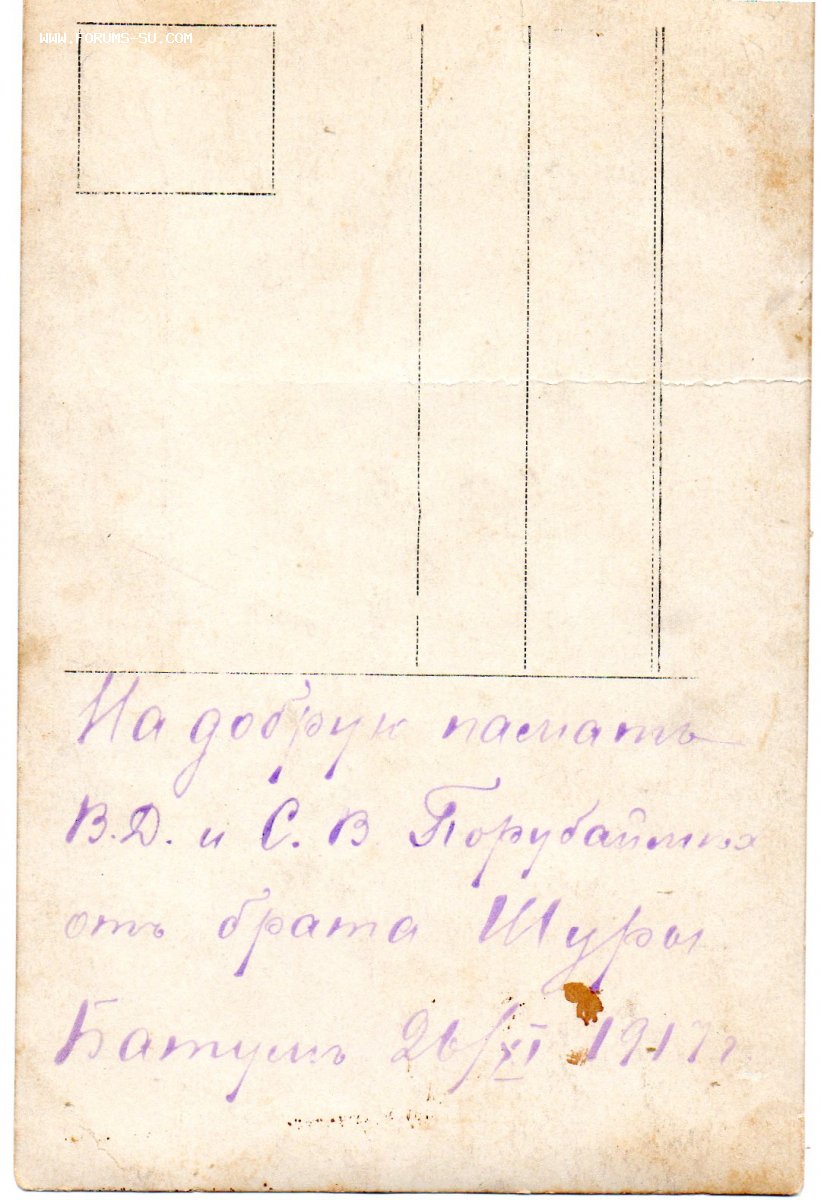 www.forums-su.com
На добрую память
В.Д. и С. В
отъ брата Шуры
Батумъ 26/XI 1917 г